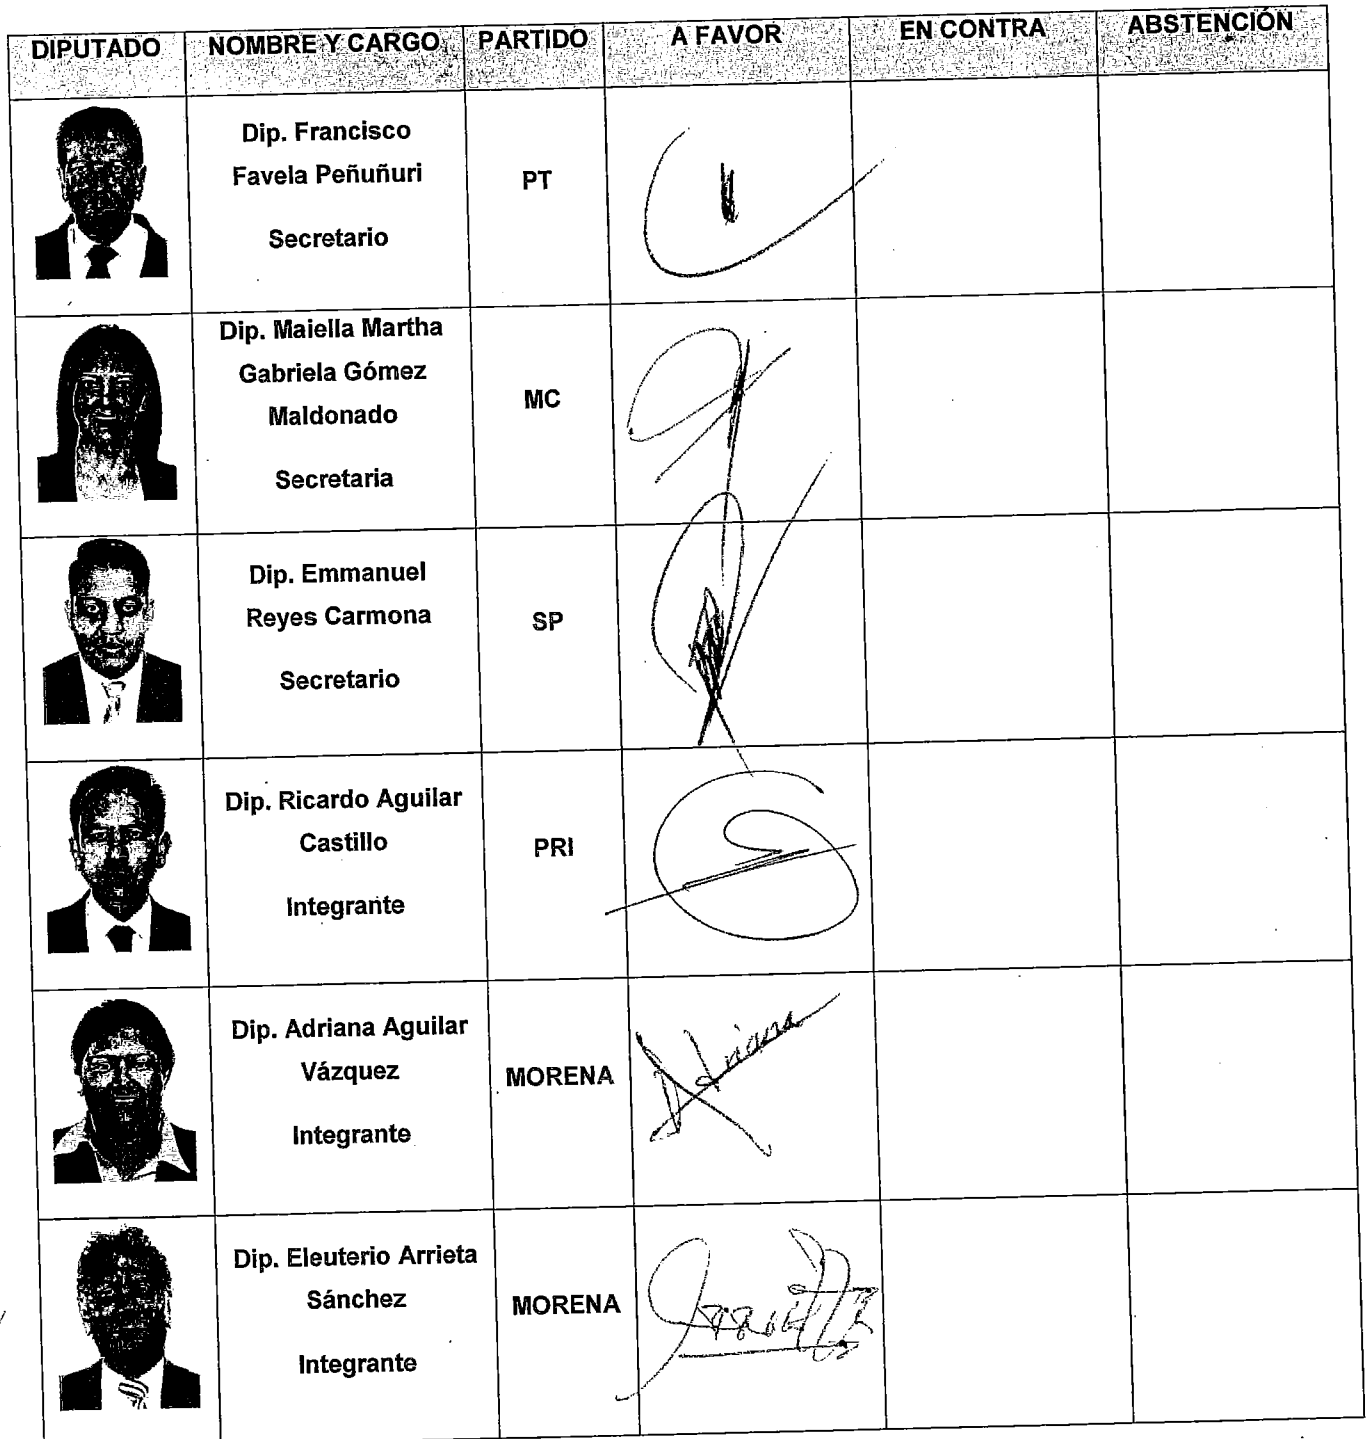 DIPUTADO NOMBRE Y CARGO PARTIDO A FAVOR EN CONTRA ABSTENCIÓN
Dip. Francisco
Favela Peñuñuri
PT
Secretario
Dip. Maiella Martha
Gabriela Gómez
Maldonado
MC
Secretaria
Dip. Emmanuel
Reyes Carmona
SP
Secretario
Dip. Ricardo Aguilar
Castillo
PRI
Integrante
Dip. Adriana Aguilar
Vázquez
MORENA
Adriana
Integrante
Dip. Eleuterio Arrieta
Sánchez
MORENA
Integrante